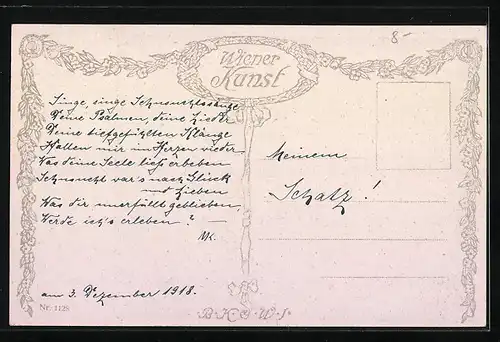 8-
Wiener
Kunst
Singe, singe Sehnsuchtssänge
Deine Psalmen, deine Lieder
Deine tiefgefühlten Klänge
Hallen mir im Herzen wieder
Was deine Seele ließ erbeben
Sehnsucht war's nach Glück
und Lieben
Was dir unerfüllt geblieben,
Werde ich's erleben? —
MK.
am 3. Dezember 1918.
Meinem
Schatz!
Nr. 1129
B.K.W.I.